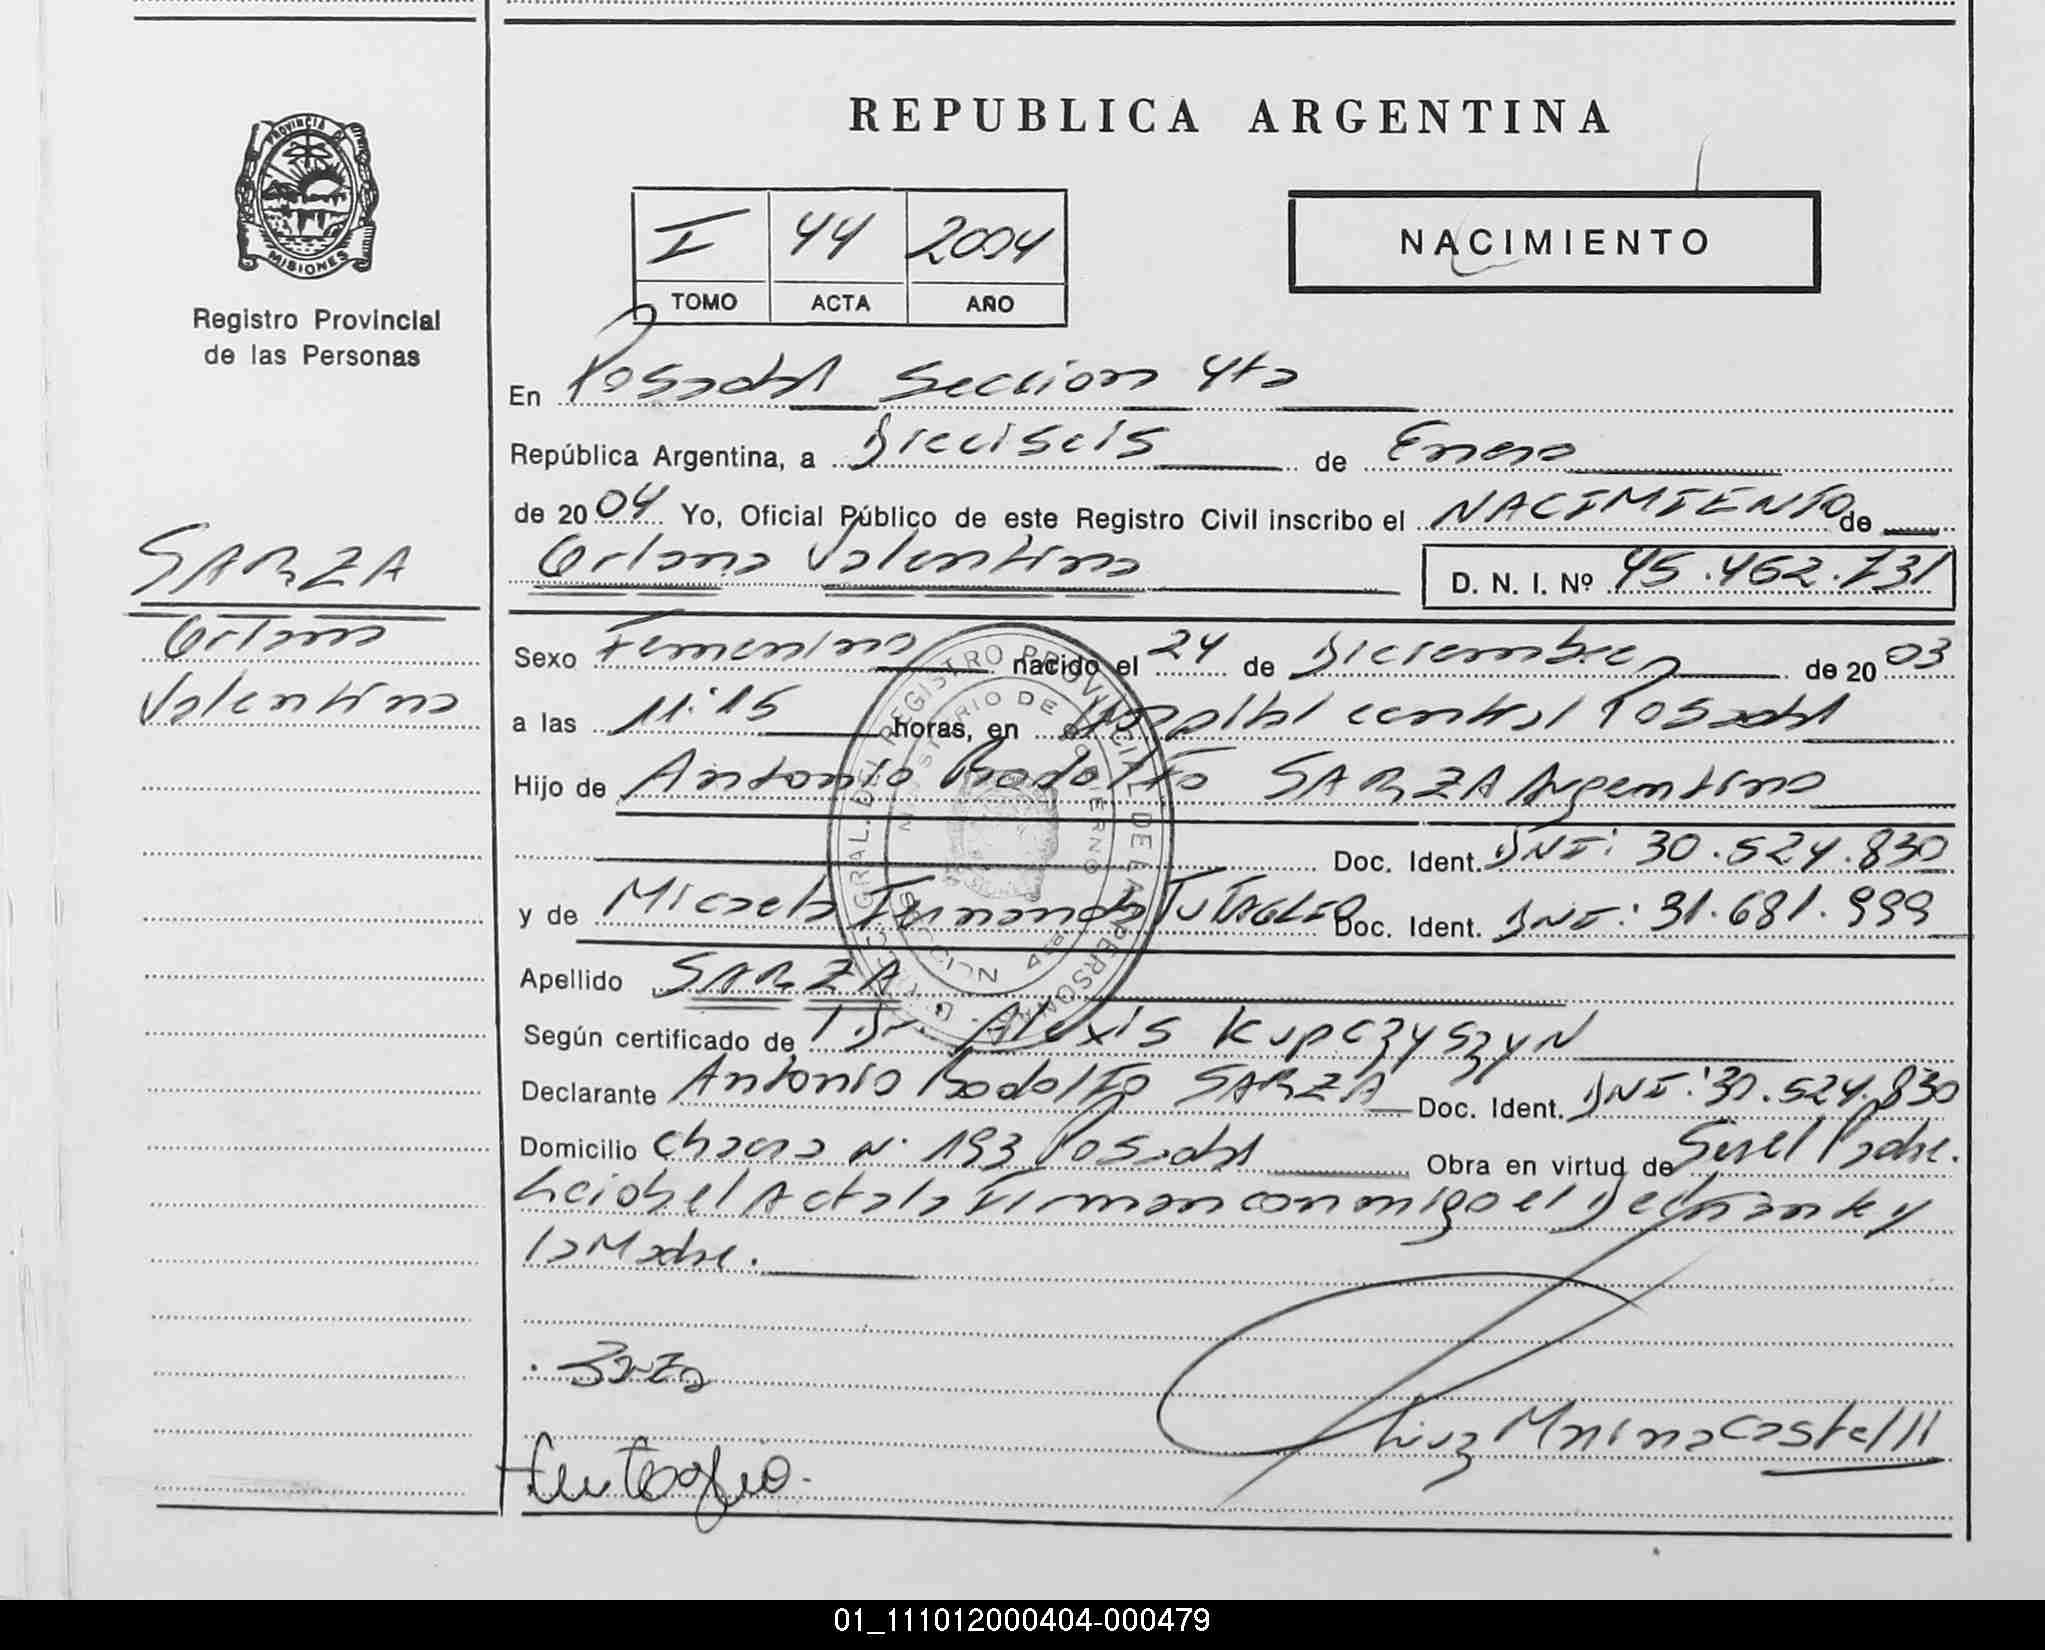 REPUBLICA ARGENTINA
PROVINCIA DE
MISIONES
Registro Provincial
de las Personas
I 44 2004
TOMO ACTA AÑO
NACIMIENTO
En Posadas Seccion 4ta
República Argentina, a Dieciseis de Enero
de 2004 Yo, Oficial Público de este Registro Civil inscribo el NACIMIENTO de
Oriana Valentina D. N. I. Nº 45.462.731
SARZA
Oriana
Valentina
Sexo Femenino nacido el 24 de Diciembre de 2003
a las 11:15 horas, en el Hospital central Posadas
Hijo de Antonio Rodolfo SARZA Argentino
Doc. Ident. DNI: 30.524.830
y de Micaela Fernanda Doc. Ident. DNI: 31.681.999
Apellido SARZA
Según certificado de Dr. Alexis Kupczyszyn
Declarante Antonio Rodolfo SARZA Doc. Ident. DNI: 30.524.830
Domicilio Chacra N. 193 Posadas Obra en virtud de Ser el Padre.
Leida el Acta la Firman conmigo el Declarante y
la Madre.
Sarza
Marina Castelli
01_111012000404-000479